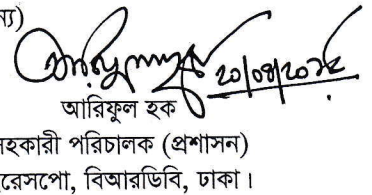 ন্য)
২০/০৪/২০১৫
আরিফুল হক
সহকারী পরিচালক (প্রশাসন)
রেসপো, বিআরডিবি, ঢাকা।